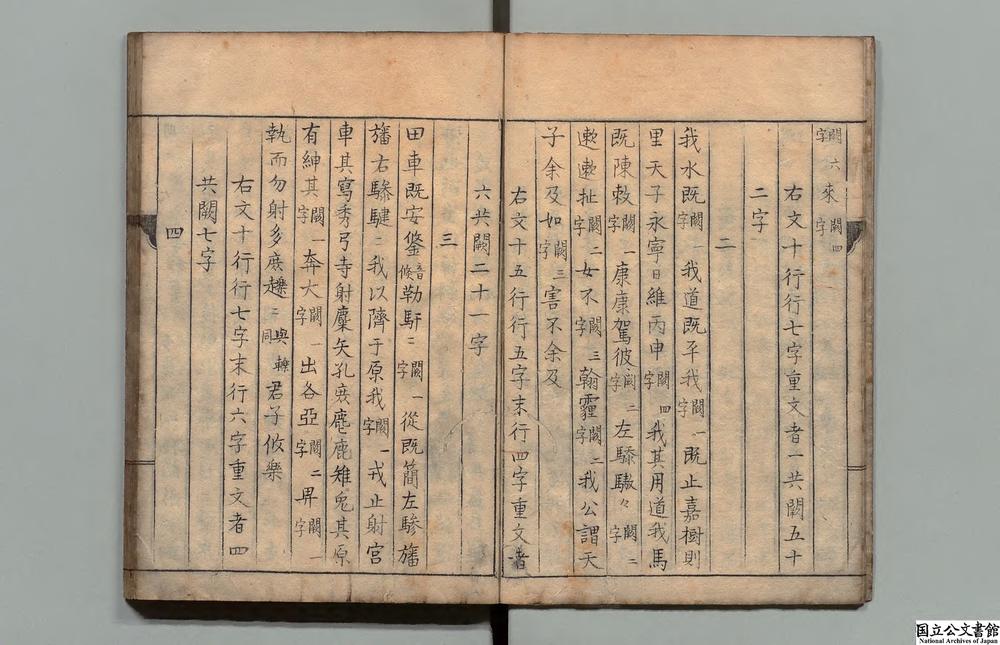 闕六字來闕四字
右文十行行七字重文者一共闕五十
二字
二
我水既闕一字我道既平我闕一字既止嘉樹則
里天子永寧日維丙申闕四字我其用道我馬
既陳敕闕一字康康駕彼闕二字左驂驐々闕二字
遬遬扯闕二字女不闕三字翰霾闕二字我公謂天
子余及如闕三字害不余及
右文十五行行五字末行四字重文者
六共闕二十一字
三
田車既安鋚音鯈勒馯〻闕一字從既簡左驂旛
旛右驂騝〻我以隮于原我闕一字戎止射宮
車其寫秀弓寺射麋豕孔庶麀鹿雉兔其原
有紳其闕一字奔大闕一字出各亞闕二字昇闕一字
執而勿射多庶趮〻與轢同君子攸樂
右文十行行七字末行六字重文者四
共闕七字
四
国立公文書館
National Archives of Japan